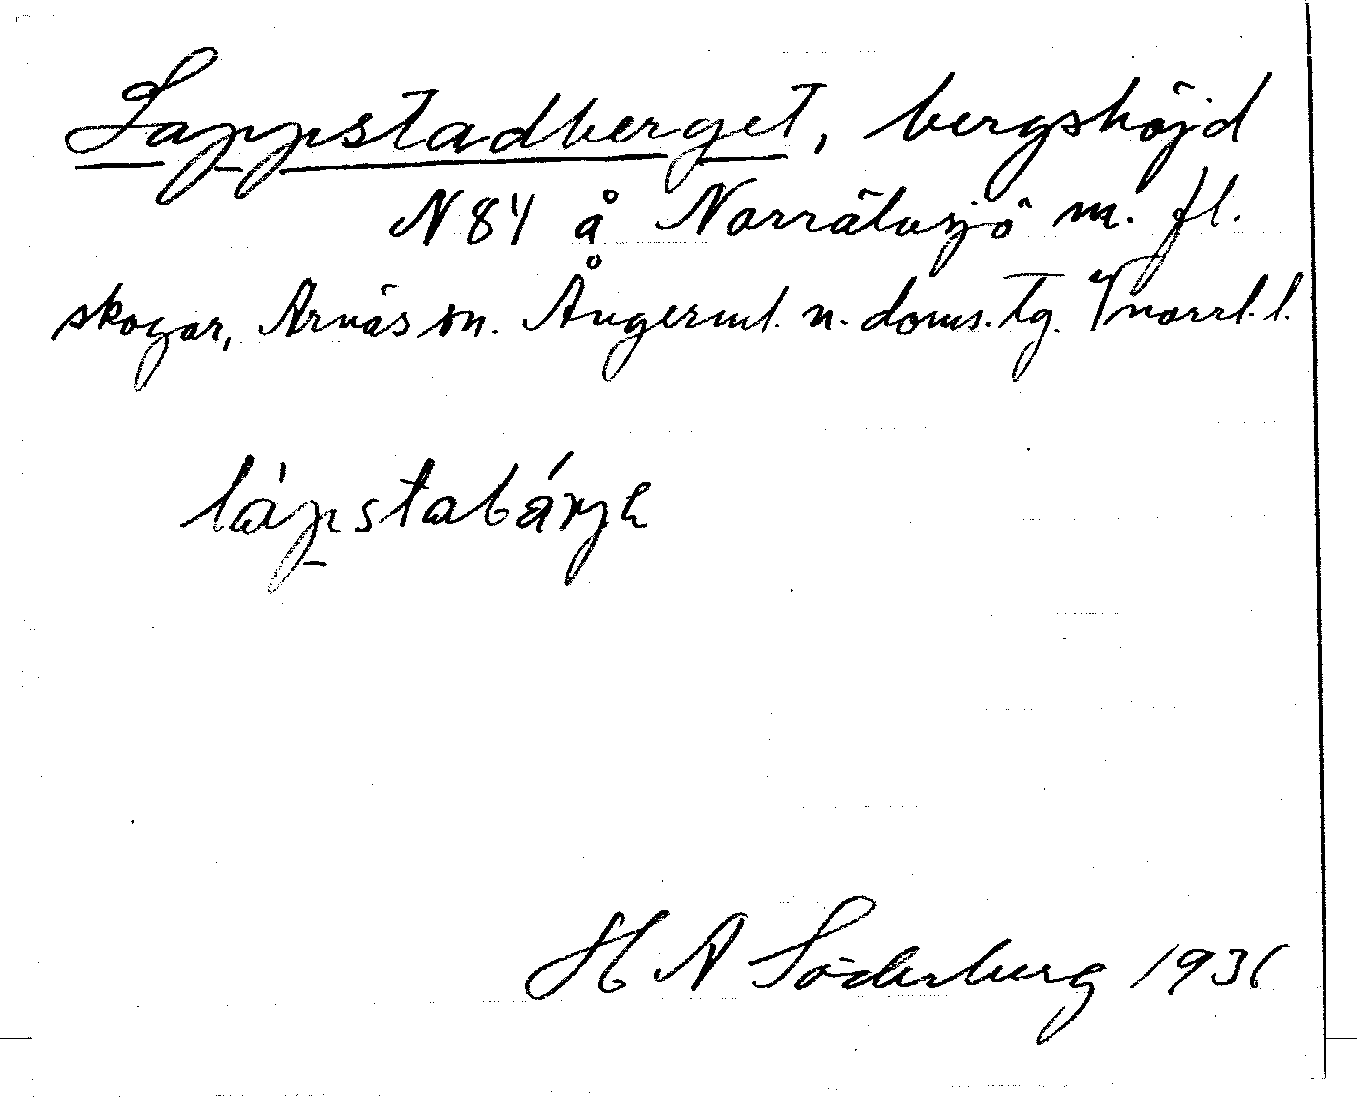 Lappstadberget, bergshöjd
N 84 å Norrälvsjö m. fl.
skogar, Arnäs sn. Ångerml. n. doms. tg. V norrl. l.
làpstabárje
H A Söderberg 1936